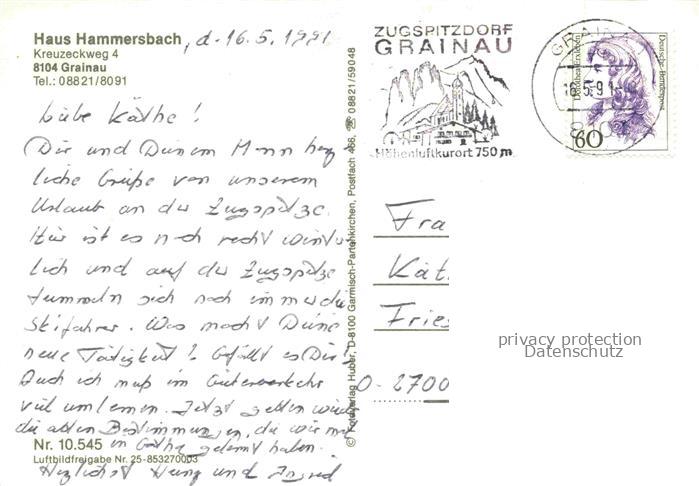 Haus Hammersbach, d. 16.5.1991
Kreuzeckweg 4
8104 Grainau
Tel.: 08821/8091
Liebe Käthe!
Dir und Deinem Mann herz
liche Grüße von unserem
Urlaub an der Zugspitze.
Hier ist es noch recht winter
lich und auf der Zugspitze
tummeln sich noch immer die
Skifahrer. Was macht Deine
neue Tätigkeit? Gefällt es Dir?
Auch ich muß im Güterverkehr
viel umlernen. Jetzt gelten wieder
die alten Bestimmungen, die wir mal
in Gotha gelernt haben.
Herzlichst Heinz und Ingrid
Nr. 10.545
Luftbildfreigabe Nr. 25-853270003
© Fotoverlag Huber, D-8100 Garmisch-Partenkirchen, Postfach 468, ☎ 08821/59048
ZUGSPITZDORF
GRAINAU
Höhenluftkurort 750 m
GRAINAU
16.5.91
8104
Deutsche Bundespost
60
Fra
Kät
Fries
O-2700
privacy protection
Datenschutz